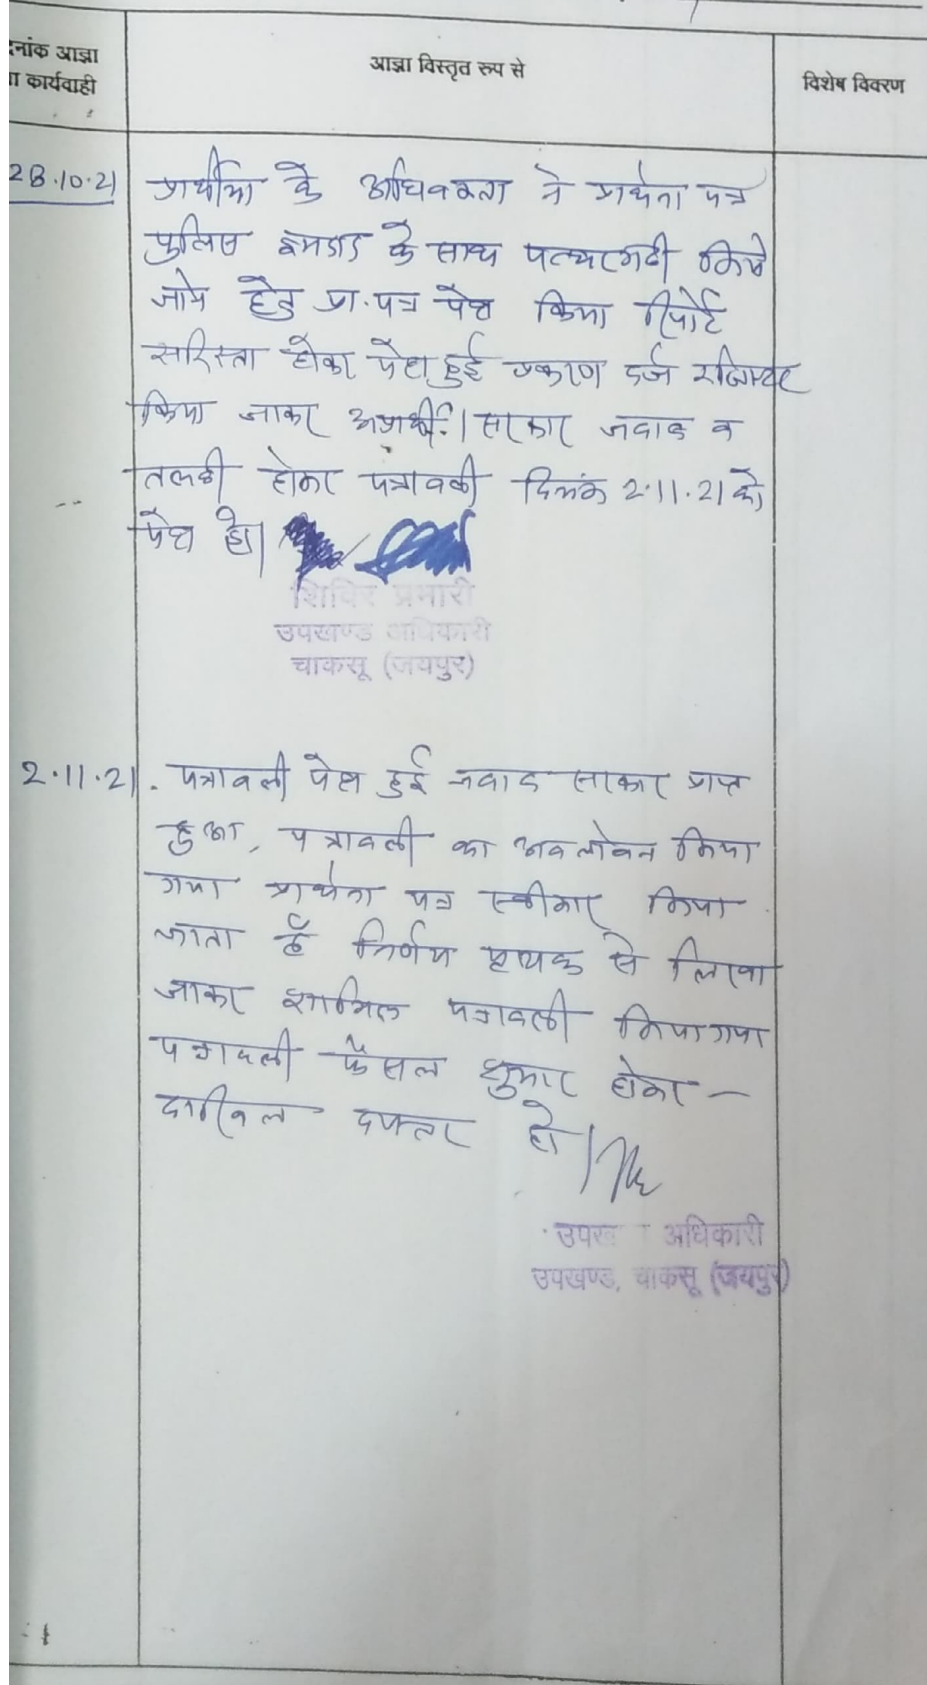 नांक आज्ञा
ा कार्यवाही
आज्ञा विस्तृत रूप से
विशेष विवरण
28.10.21
प्रार्थीया के अधिवक्ता ने प्रार्थना पत्र
पुलिस इमदाद के साथ पत्थरगढी किये
जाने हेतु प्रा.पत्र पेश किया रिपोर्ट
सरिस्ता होकर पेश हुई प्रकरण दर्ज रजिस्टर
किया जाकर अप्रार्थी. । सरकार जवाब व
तलबी होकर पत्रावली दिनांक 2.11.21 को
पेश हो।
शिविर प्रभारी
उपखण्ड अधिकारी
चाकसू (जयपुर)
2.11.21. पत्रावली पेश हुई जवाब सरकार प्राप्त
हुआ, पत्रावली का अवलोकन किया
गया प्रार्थना पत्र स्वीकार किया
जाता है निर्णय पृथक से लिखा
जाकर शामिल पत्रावली किया गया
पत्रावली फैसल शुमार होकर –
दाखिल दफ्तर हो।
उपख अधिकारी
उपखण्ड, चाकसू (जयपुर)